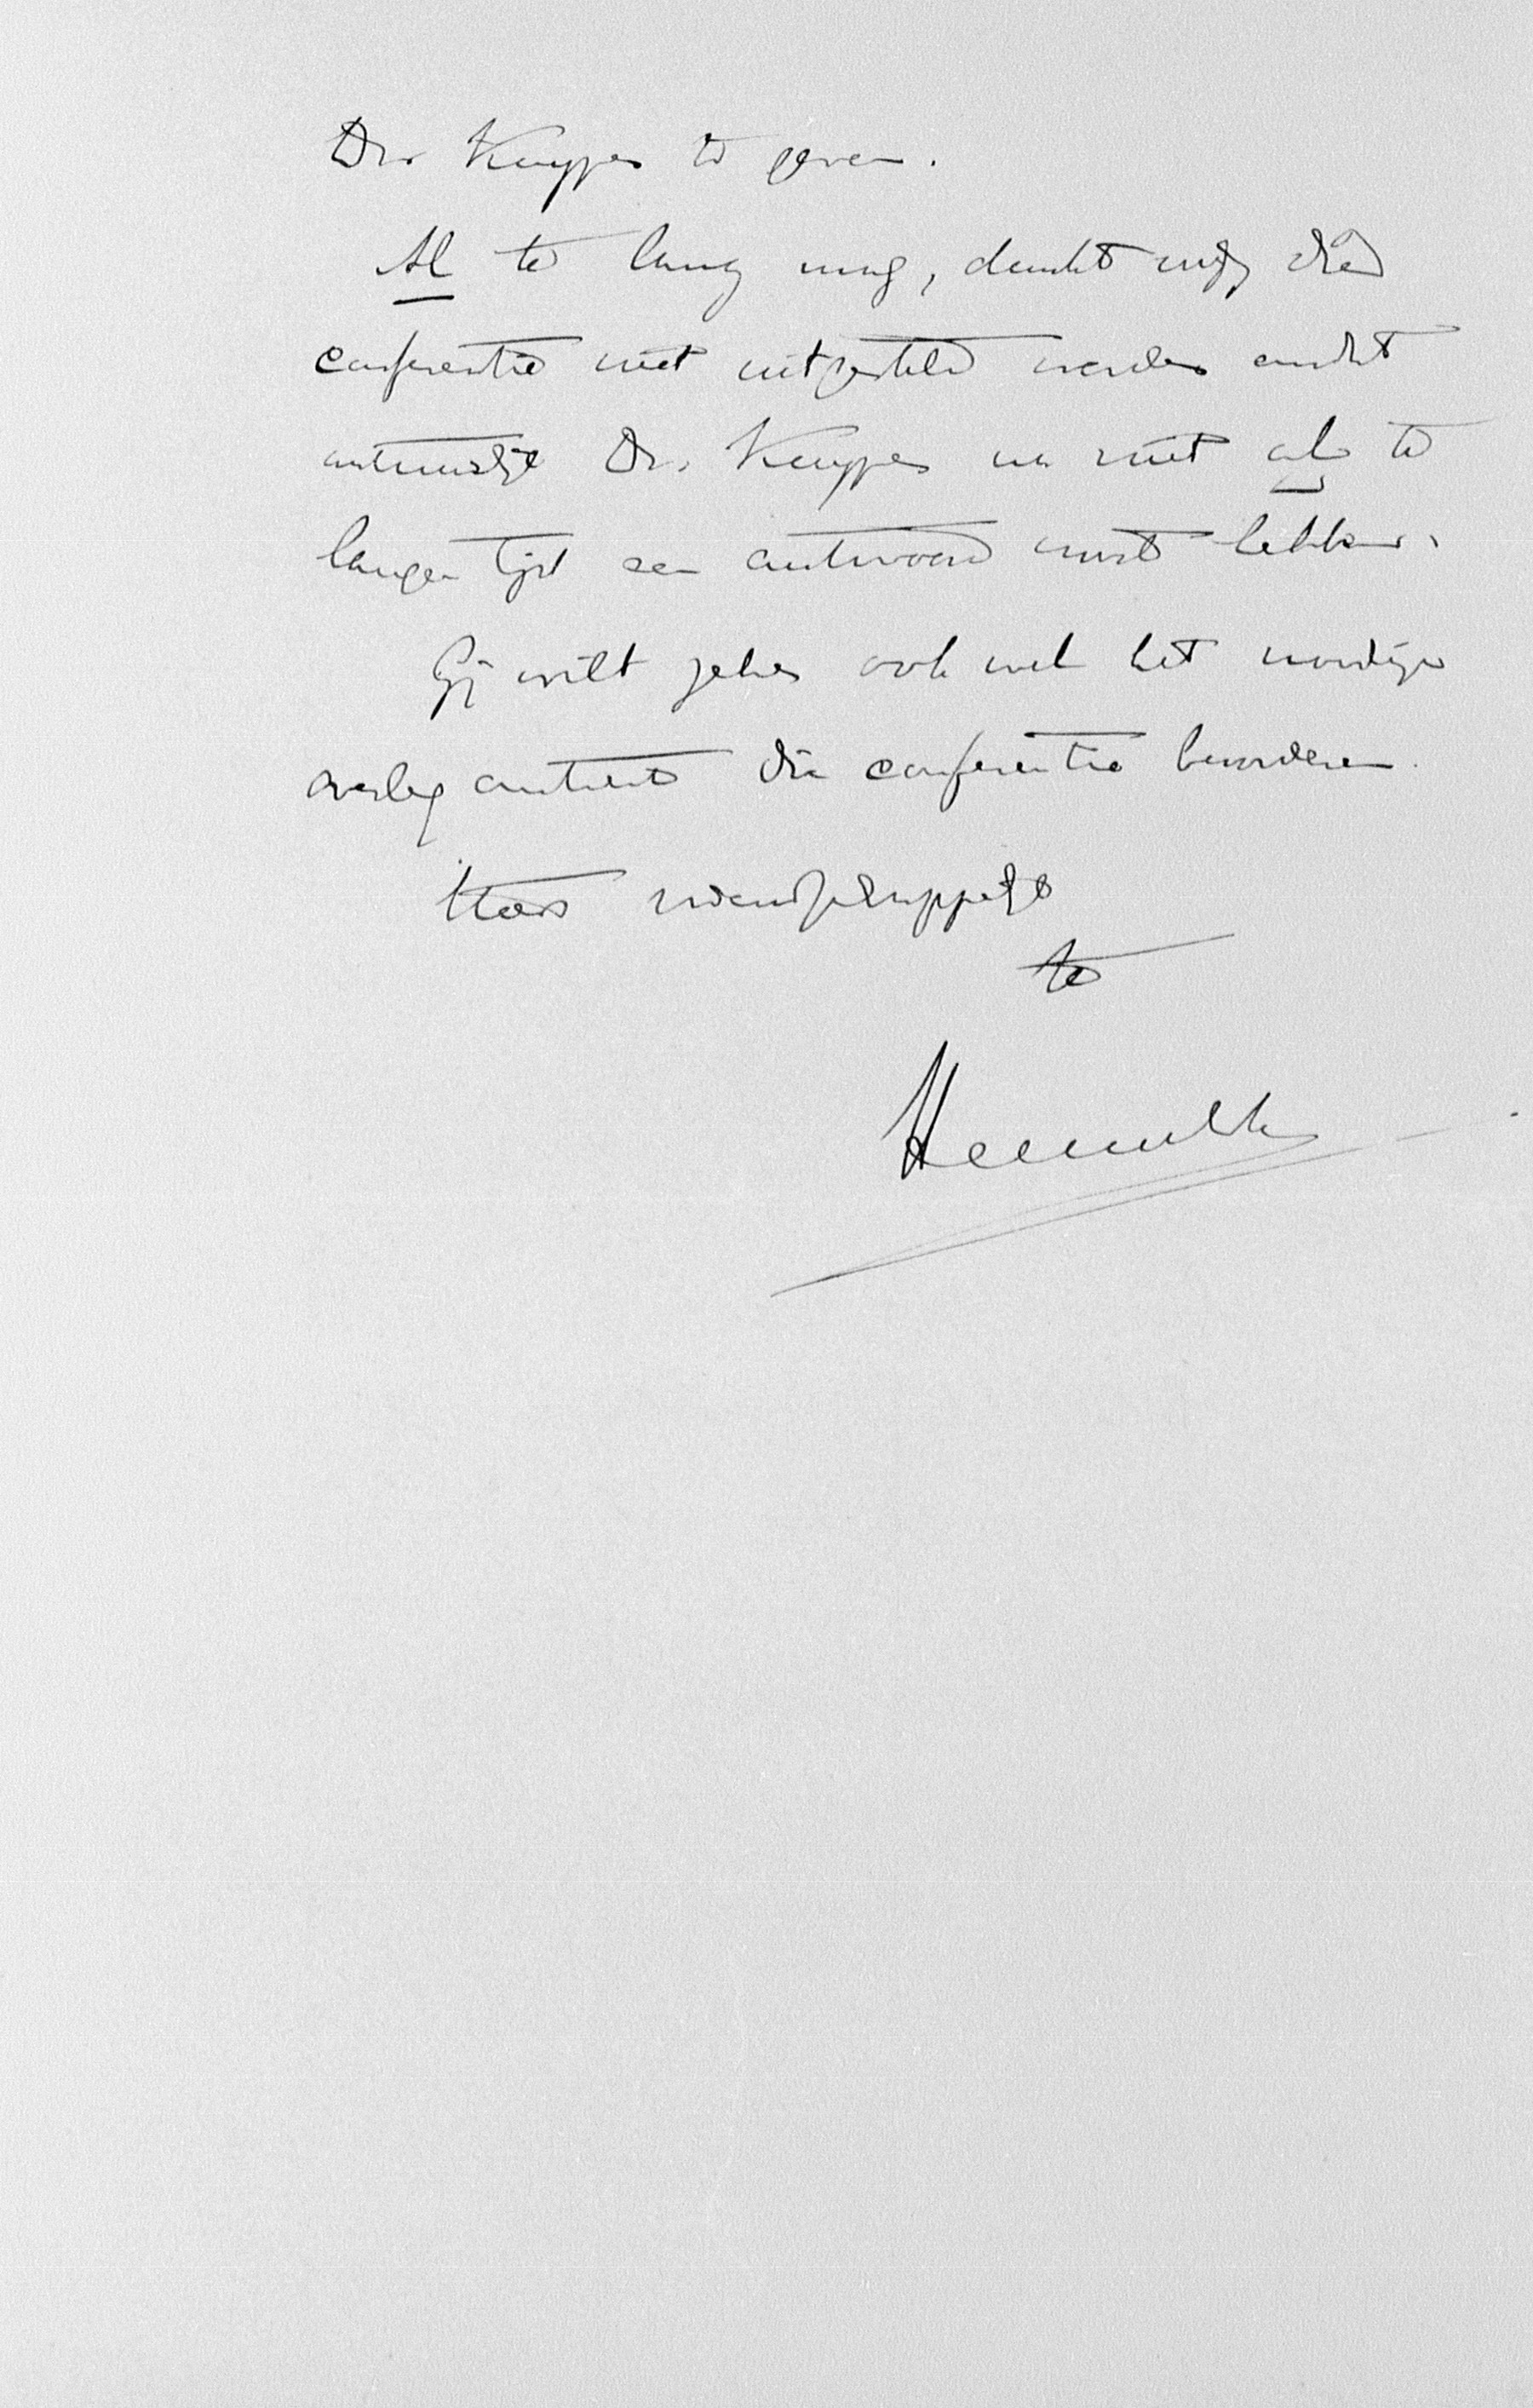 Dr. Kuyper te geven.
Al te lang mag, dunkt mij, die
conferentie niet uitgesteld worden omdat
natuurlijk Dr. Kuyper na niet al te
langen tijd een antwoord moet hebben.
Gij wilt zeker ook wel het noodige
overleg omtrent die conferentie bevorderen.
t.t.
Heemskerk